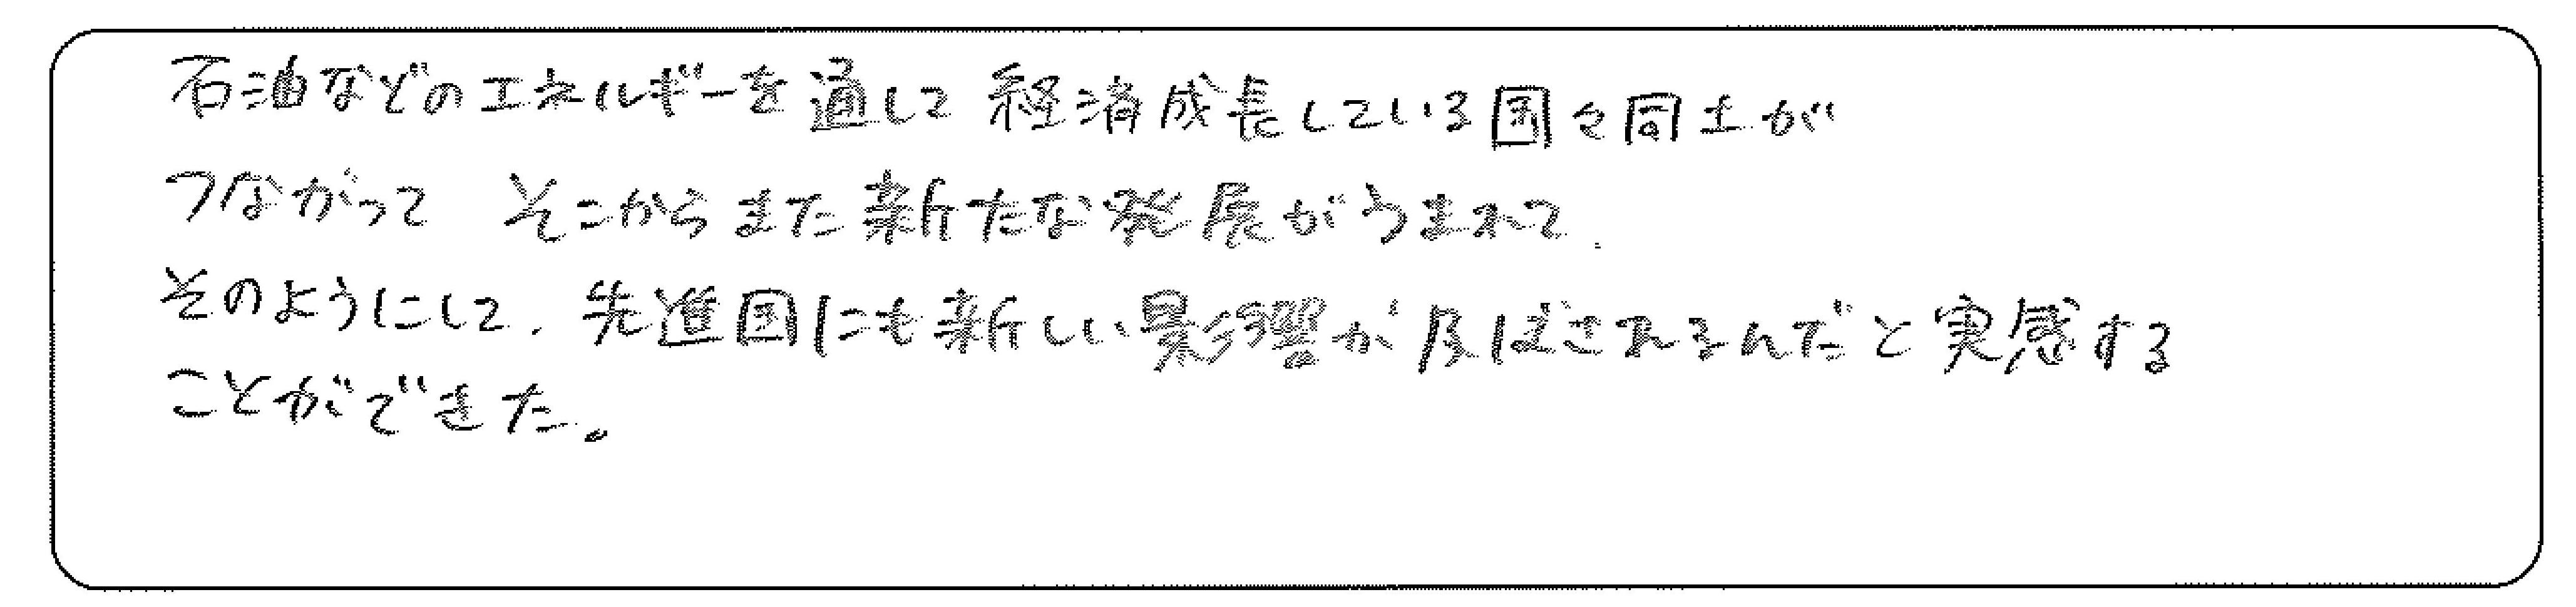 石油などのエネルギーを通して経済成長している国々同士が
つながって そこからまた新たな発展がうまれて、
そのようにして、先進国にも新しい影響が及ぼされるんだと実感する
ことができた。